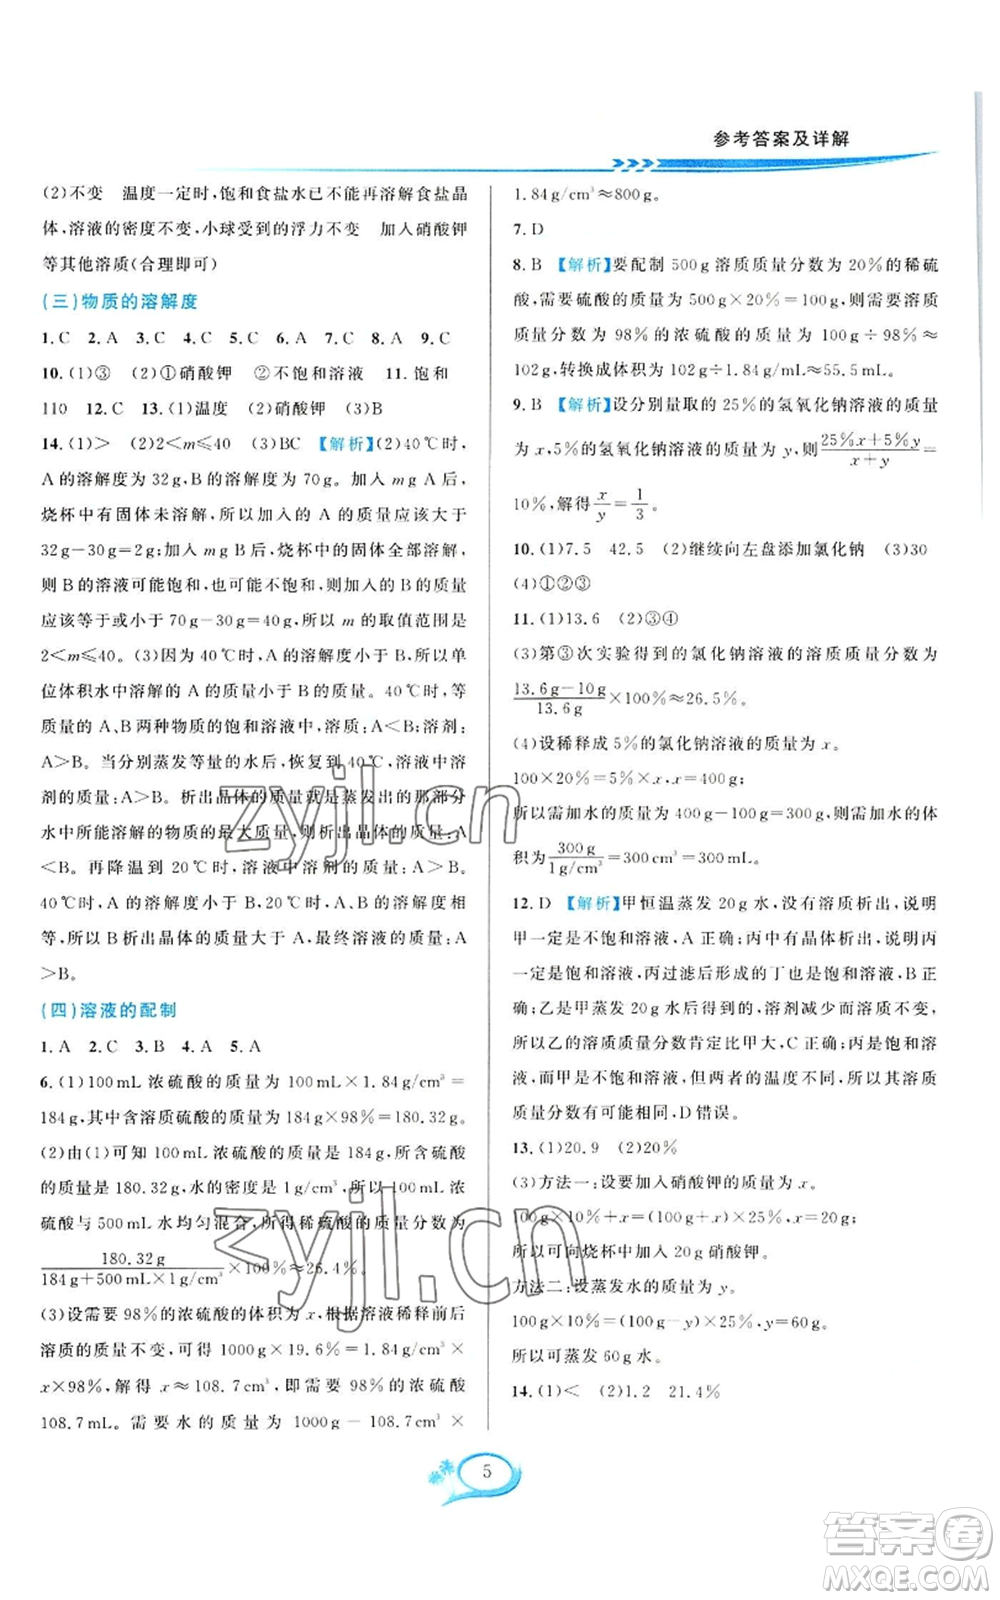 参考答案及详解
(2)不变　温度一定时,饱和食盐水已不能再溶解食盐晶
体,溶液的密度不变,小球受到的浮力不变　加入硝酸钾
等其他溶质(合理即可)
(三)物质的溶解度
1.C　2.A　3.C　4.B　5.B　6.C　7.B　8.A　9.C
10.(1)③　(2)①硝酸钾　②不饱和溶液　11.饱和
110　12.C　13.(1)温度　(2)硝酸钾　(3)B
14.(1)>　(2)2<m≤40　(3)BC　【解析】(2)40℃时,
A的溶解度为32g,B的溶解度为70g。加入 m g A 后,
烧杯中有固体未溶解,所以加入的 A 的质量应该大于
32g-30g=2g;加入 m g B 后,烧杯中的固体全部溶解,
则B的溶液可能饱和,也可能不饱和,加入的B的质量
应该等于或小于70g-30g=40g;所以 m 的取值范围是
2<m≤40。(3)因为40℃时,A的溶解度小于B,所以单
位体积水中溶解的 A 的质量小于 B 的质量。40℃时,等
质量的A、B两种物质的饱和溶液中,溶质:A<B;溶剂:
A>B。当分别蒸发等量的水后,恢复到40℃,剩余溶剂
的质量:A>B。析出晶体的质量就是蒸发出的那部分
水中所能溶解的物质的最大质量,则析出晶体的质量:A
<B。再降温到20℃时,溶液中溶剂的质量:A>B。从
40℃到20℃,A的溶解度小于B,且溶解度变化相
等,所以B析出晶体的质量大于A,最终溶液的质量:A
>B。
(四)溶液的配制
1.A　2.C　3.B　4.A　5.A
6.(1)100mL浓硫酸的质量为100mL×1.84g/cm³=
184g,其中含溶质硫酸的质量为184g×98%=180.32g。
(2)由(1)可知100mL浓硫酸的质量是184g,所含硫酸
的质量是180.32g,水的密度是1g/cm³,所以100mL浓
硫酸与500mL水均匀混合,所得稀硫酸的质量分数为
180.32g/(184g+500mL×1g/cm³)×100%≈26.4%。
(3)设需要98%的浓硫酸的体积为x,根据溶液稀释前后
溶质的质量不变,可得1000g×19.6%=1.84g/cm³×
x×98%　x≈108.7cm³,即需要98%的浓硫酸
108.7mL。需要水的质量为1000g-108.7cm³×
1.84g/cm³≈800g。
7.D
8.B　【解析】要配制500g溶质质量分数为20%的稀硫
酸,需要硫酸的质量为500g×20%=100g,则需要溶质
质量分数为98%的浓硫酸的质量为100g÷98%≈
102g,转换成体积为102g÷1.84g/mL≈55.5mL。
9.B　【解析】设分别量取的25%的氢氧化钠溶液的质量
为x,5%的氢氧化钠溶液的质量为y,则(25%x+5%y)/(x+y)=
10%,解得x/y=1/3。
10.(1)7.5　42.5　(2)继续向左盘添加氯化钠　(3)30
(4)①②③
11.(1)13.6　(2)③④
(3)第③次实验得到的氯化钠溶液的溶质质量分数为
(13.6g-10g)/13.6g×100%≈26.5%。
(4)设稀释成5%的氯化钠溶液的质量为x。
100×20%=5%×x,x=400g;
所以需加水的质量为400g-100g=300g,则需加水的体
积为300g/(1g/cm³)=300cm³=300mL。
12.D　【解析】甲恒温蒸发20g水,没有溶质析出,说明
甲一定是不饱和溶液,A正确;丙中有晶体析出,说明丙
一定是饱和溶液,丙过滤后形成的丁也是饱和溶液,B正
确;乙是甲蒸发20g水后得到的,溶剂减少而溶质不变,
所以乙的溶质质量分数肯定比甲大,C正确;丙是饱和溶
液,而甲是不饱和溶液,但两者的温度不同,所以其溶质
质量分数有可能相同,D错误。
13.(1)20.9　(2)20%
(3)方法一:设要加入硝酸钾的质量为x。
100g×10%+x=(100g+x)×25%,x=20g;
所以可向烧杯中加入20g硝酸钾。
方法二:设蒸发水的质量为y。
100g×10%=(100g-y)×25%,y=60g。
所以可蒸发60g水。
14.(1)<　(2)1.2　21.4%
5
zyjl.cn
zyjl.cn
答案圈
MXQE.COM